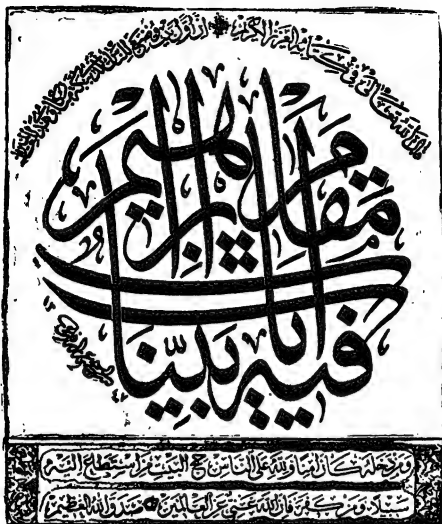 قال الله تعالى في كتابه العزيز الكريم إن أول بيت وضع للناس للذي ببكة مباركا وهدى للعالمين
فيه آيات بينات
مقام إبراهيم
ومن دخله كان آمنا ولله على الناس حج البيت من استطاع إليه
سبيلا ومن كفر فإن الله غني عن العالمين صدق الله العظيم